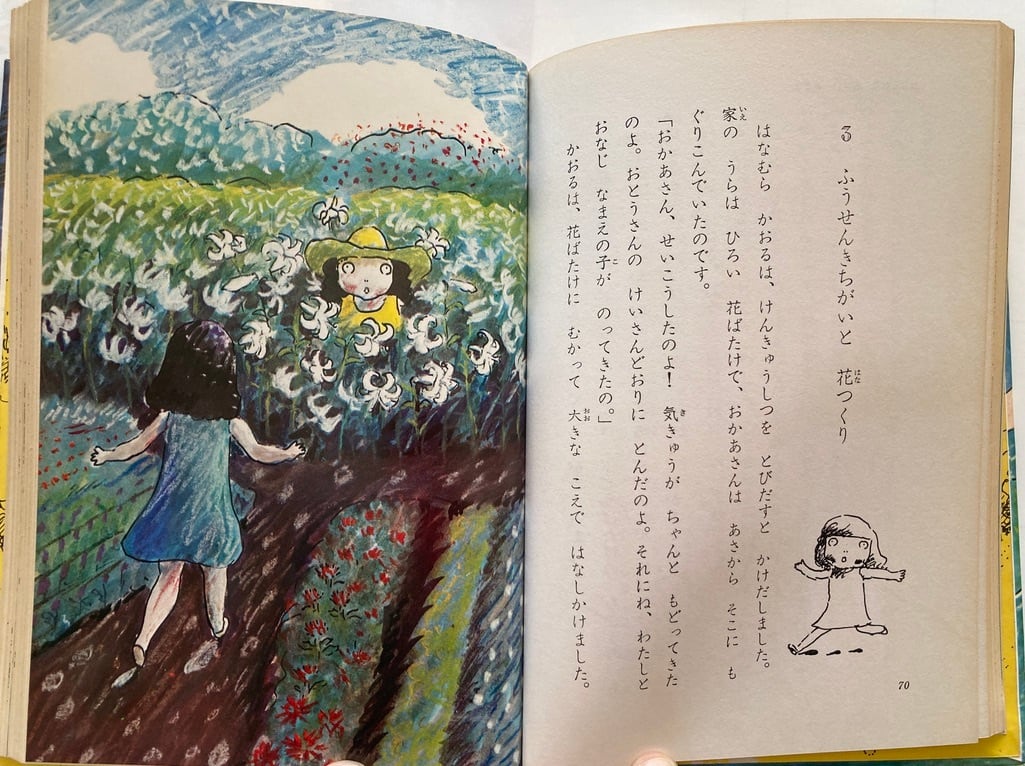 る　ふうせんきちがいと　花つくり
はなむら　かおるは、けんきゅうしつを　とびだすと　かけだしました。
家の　うらは　ひろい　花ばたけで、おかあさんは　あさから　そこに　も
ぐりこんでいたのです。
「おかあさん、せいこうしたのよ！　気きゅうが　ちゃんと　もどってきた
のよ。おとうさんの　けいさんどおりに　とんだのよ。それにね、わたしと
おなじ　なまえの子が　のってきたの。」
かおるは、花ばたけに　むかって　大きな　こえで　はなしかけました。
70